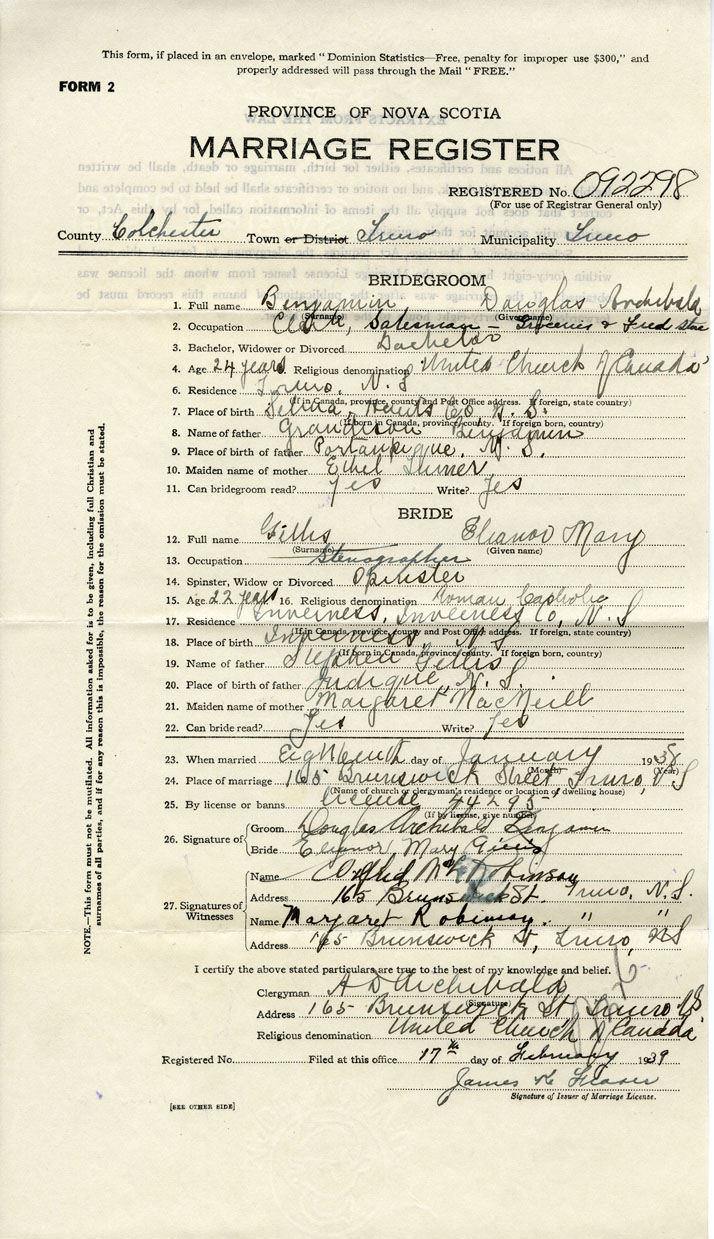 This form, if placed in an envelope, marked "Dominion Statistics—Free, penalty for improper use $300," and
properly addressed will pass through the Mail "FREE."
FORM 2
PROVINCE OF NOVA SCOTIA
MARRIAGE REGISTER
REGISTERED No. 092298
(For use of Registrar General only)
County Colchester Town or District Truro Municipality Truro
BRIDEGROOM
1. Full name Benjamin Douglas Archibald
(Surname) (Given name)
2. Occupation Clerk, Salesman - Groceries & Feed Store
3. Bachelor, Widower or Divorced Bachelor
4. Age 24 years Religious denomination United Church of Canada
6. Residence Truro, N. S
(If in Canada, province, county and Post Office address. If foreign, state country)
7. Place of birth Selma, Hants Co, N. S.
(If born in Canada, province, county. If foreign born, country)
8. Name of father Grandison Benjamin
9. Place of birth of father Portaupique, N. S.
10. Maiden name of mother Ethel Turner
11. Can bridegroom read? Yes Write? Yes
BRIDE
12. Full name Gillis Eleanor Mary
(Surname) (Given name)
13. Occupation Stenographer
14. Spinster, Widow or Divorced Spinster
15. Age 22 years 16. Religious denomination Roman Catholic
17. Residence Inverness, Inverness Co, N. S
(If in Canada, province, county and Post Office address. If foreign, state country)
18. Place of birth Inverness, N. S
(If born in Canada, province/county. If foreign born, country)
19. Name of father Stephen Gillis
20. Place of birth of father Judique, N. S.
21. Maiden name of mother Margaret MacNeill
22. Can bride read? Yes Write? Yes
23. When married Eighteenth day of January 19
(Month) (Year)
24. Place of marriage 165 Brunswick Street Truro, N S
(Name of church or clergyman's residence or location of dwelling house)
25. By license or banns license 44295
(If by license, give number)
26. Signature of Groom Douglas Archibald Benjamin
Bride Eleanor Mary Gillis
27. Signatures of Witnesses
Name Robinson
Address 165 Brunswick St. Truro, N. S.
Name Margaret Robinson " "
Address 165 Brunswick St, Truro, N S
I certify the above stated particulars are true to the best of my knowledge and belief.
Clergyman A D Archibald
(Signature)
Address 165 Brunswick St Truro N S
Religious denomination United Church of Canada
Registered No. Filed at this office 17th day of February 1939
James K Fraser
Signature of Issuer of Marriage License.
[SEE OTHER SIDE]
NOTE.—This form must not be mutilated. All information asked for is to be given, including full Christian and
surnames of all parties, and if for any reason this is impossible, the reason for the omission must be stated.